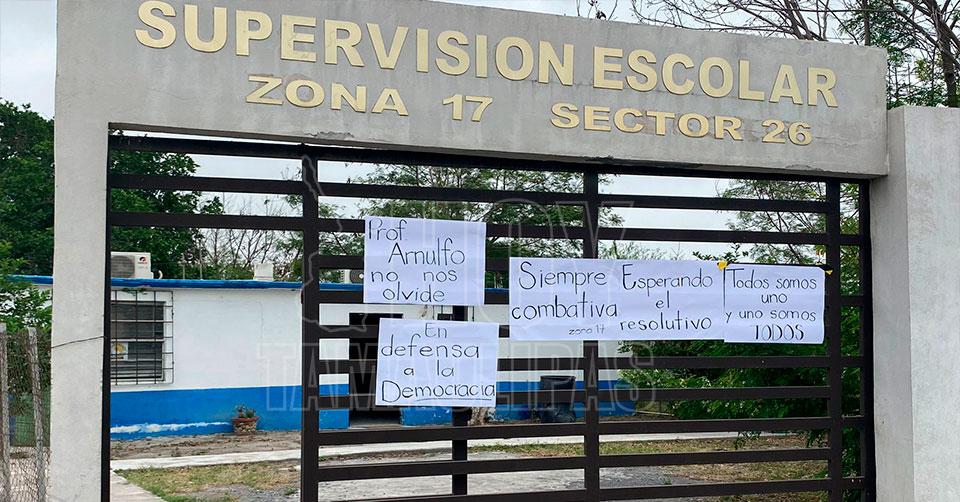 SUPERVISION ESCOLAR
ZONA 17 SECTOR 26
Prof.
Arnulfo
no nos
olvide
Siempre
combativa
zona 17
Esperando
el
resolutivo
Todos somos
uno
y uno somos
TODOS
En
defensa
a la
Democracia
HOY
TAMAULIPAS